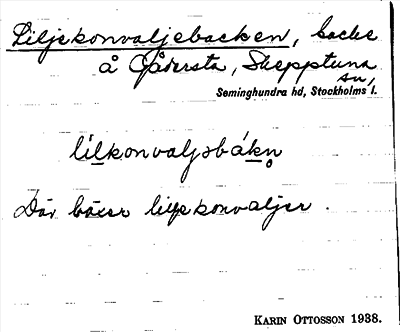 Liljekonvaljebacken, backe
å Gåversta, Skepptuna
sn,
Seminghundra hd, Stockholms l.
lilkonvaljsbákn̥
Där växer liljekonvaljer.
KARIN OTTOSSON 1938.